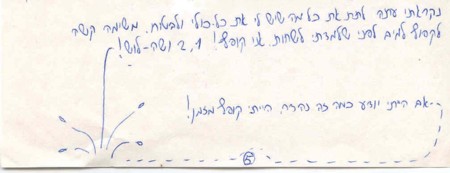 נקראתי עתה לתת את כל מה שיש לי את כל-כולי ולבטוח. משימה קשה
לקפוץ למים לפני שלמדתי לשחות. אני קופץ! 1, 2 ושה-לוש!
--אם הייתי יודע כמה זה נהדר, הייתי קופץ מזמן!
5